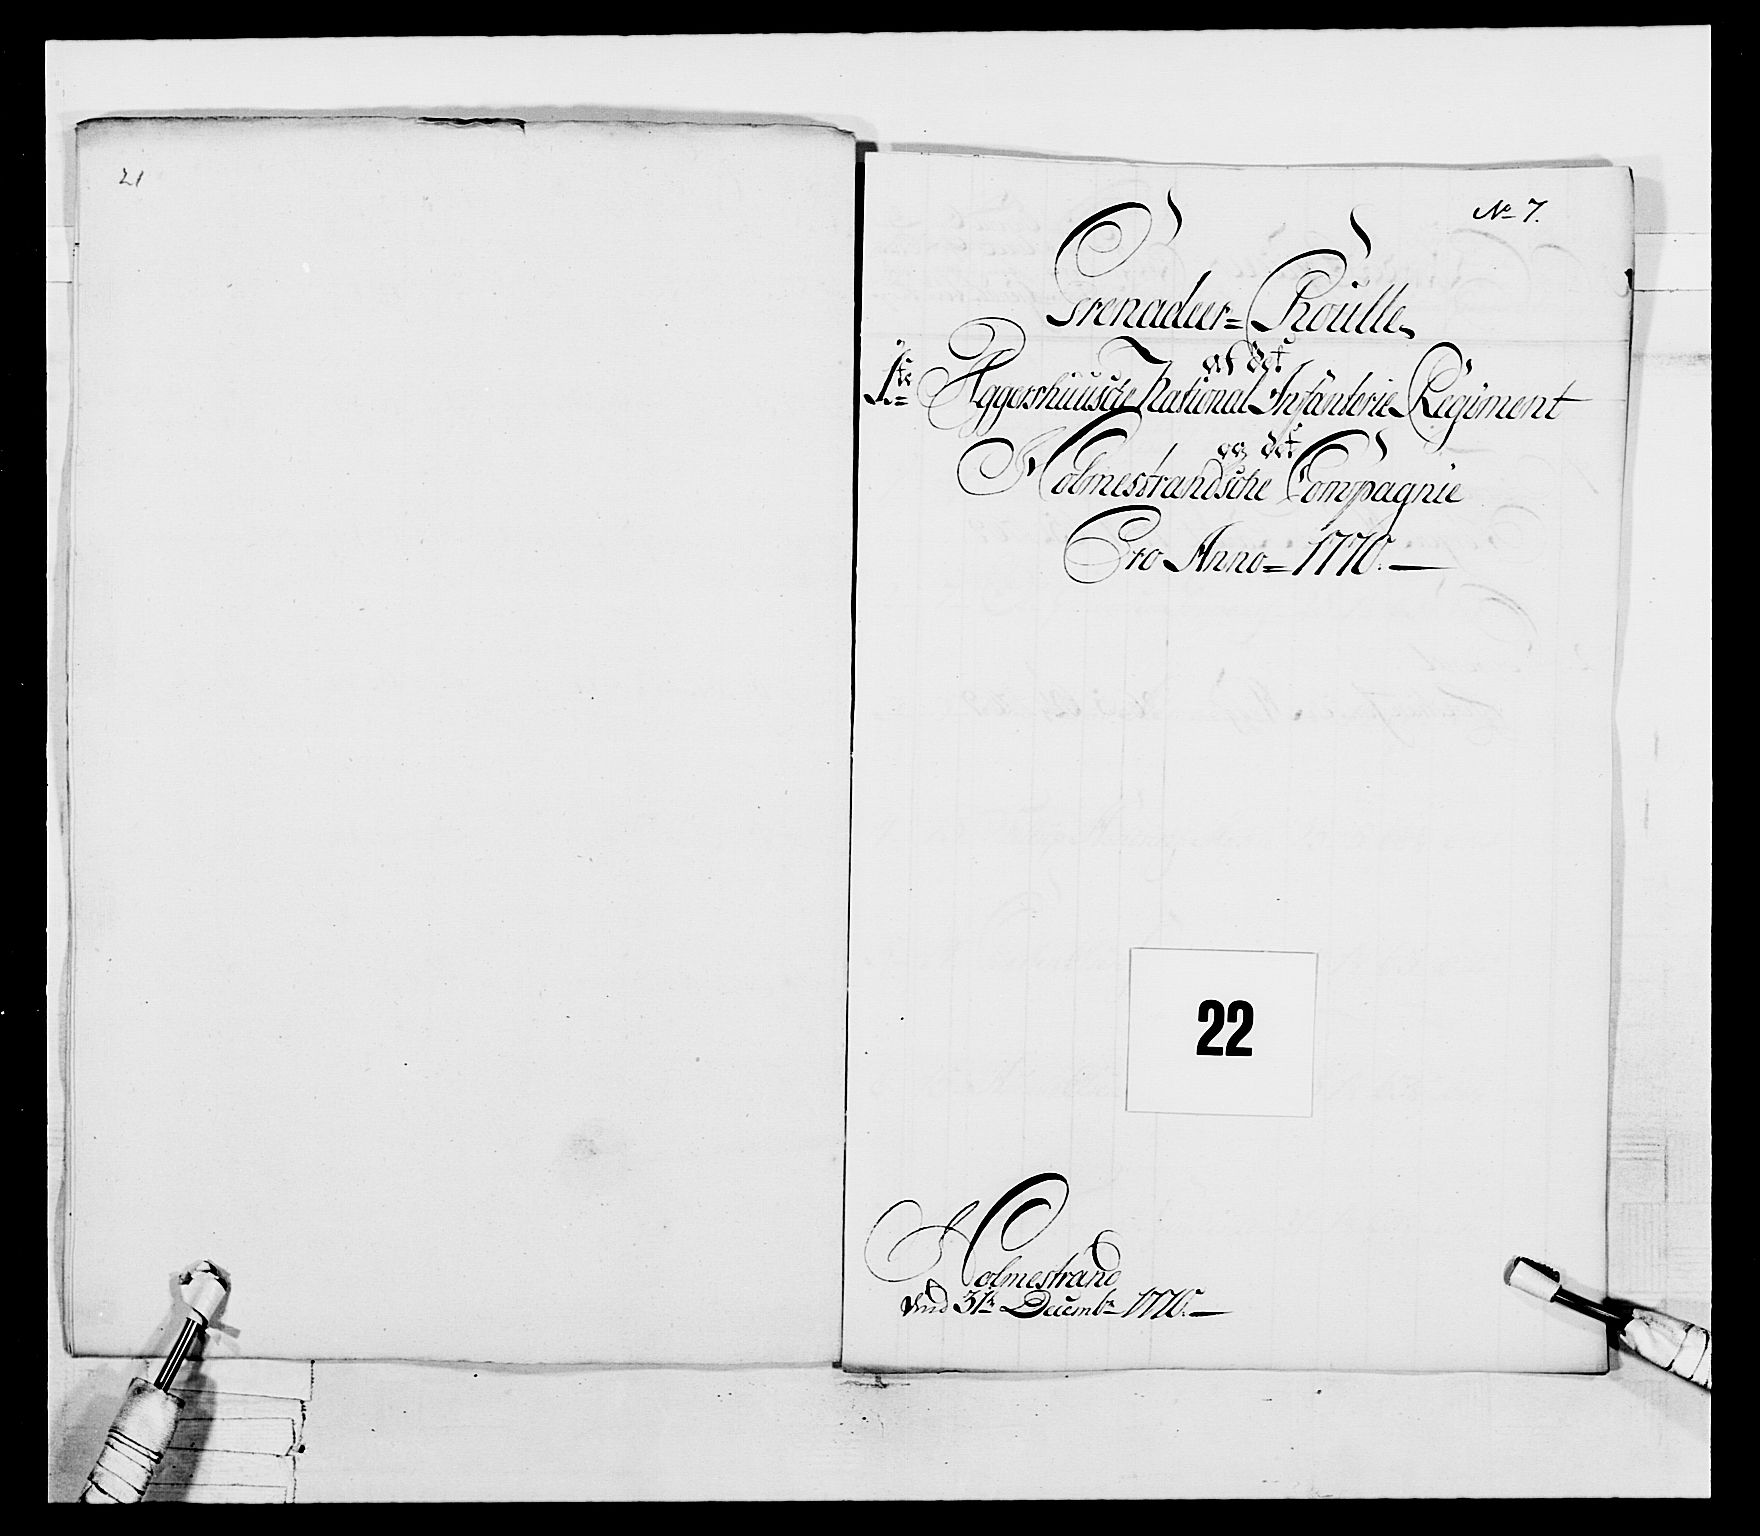 21
No 7.
Grenadeer= Roulle
af det
1ste Aggershuusche National Infanterie Regiment
og det
Holmestrandsche Compagnie
Pro Anno= 1770.
22
Holmestrand
den 31te Decembr 1770.